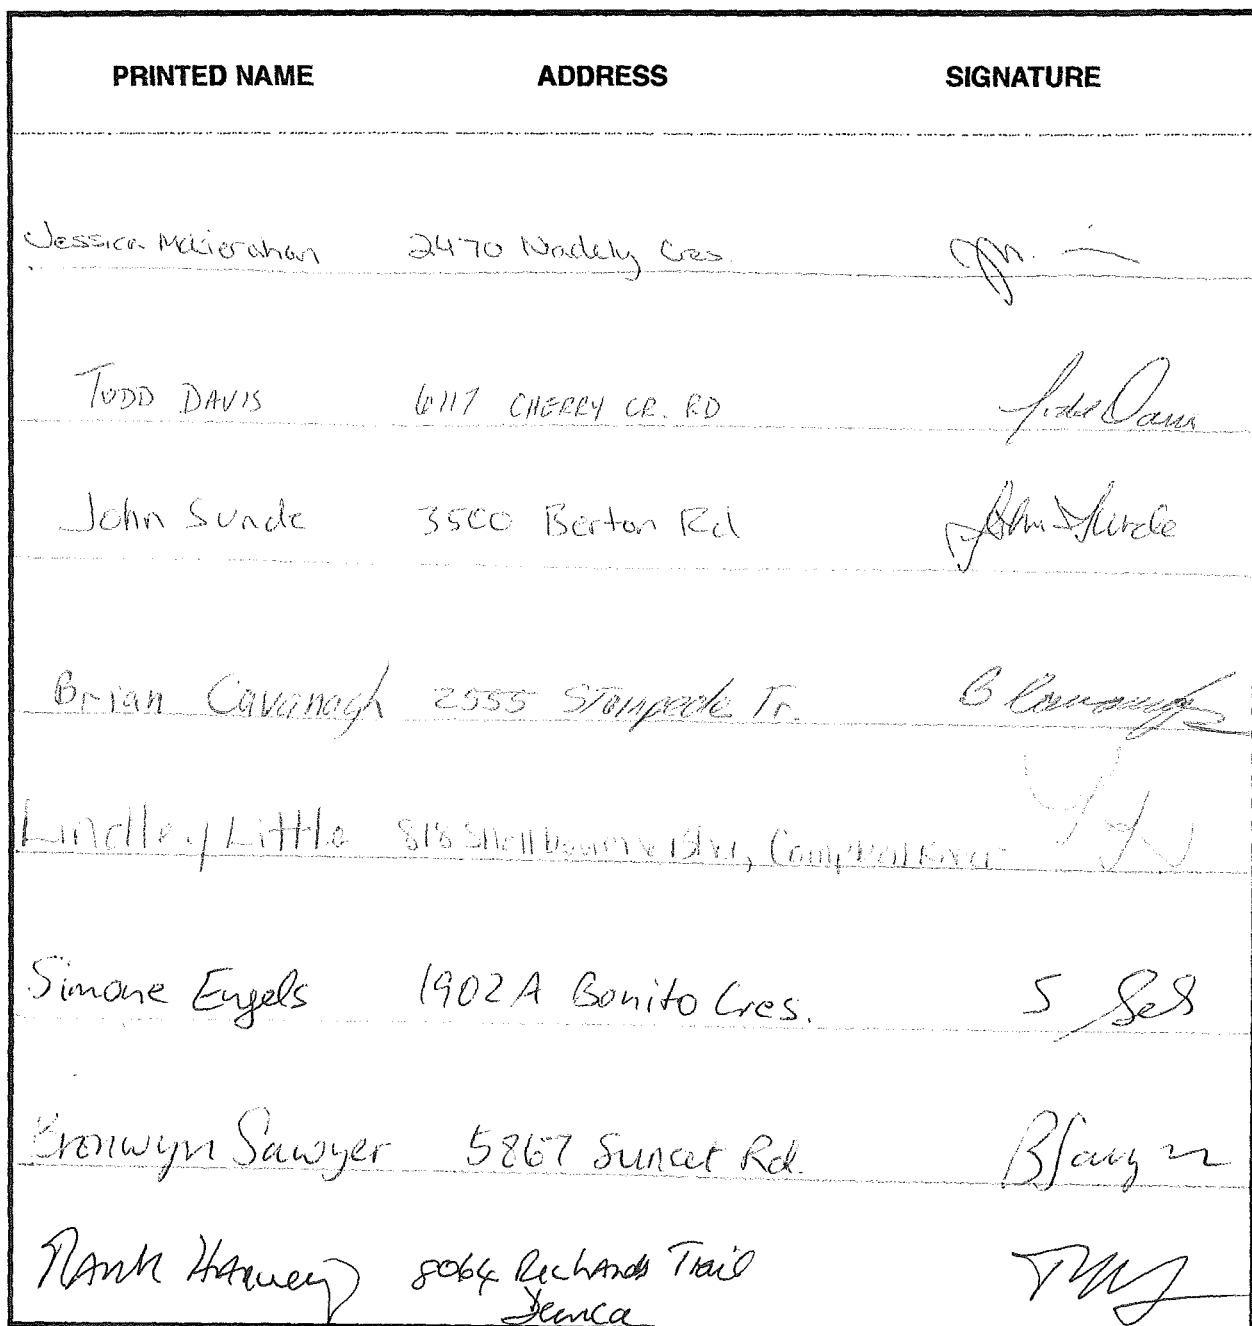 PRINTED NAME ADDRESS SIGNATURE
Jessica McKierahan 2470 Cres.
TODD DAVIS 6117 CHERRY CR. RD Todd Davis
John Sunde 3500 Berton Rd John Sunde
Brian Cavanagh 2555 Stampede Tr. B Cavanagh
Lindley Little 818 Shellbourne Blvd, Campbell River
Simone Engels 1902A Bonito Cres. S
Bronwyn Sawyer 5867 Sunset Rd. B Sawyer
8064 Richards Trail